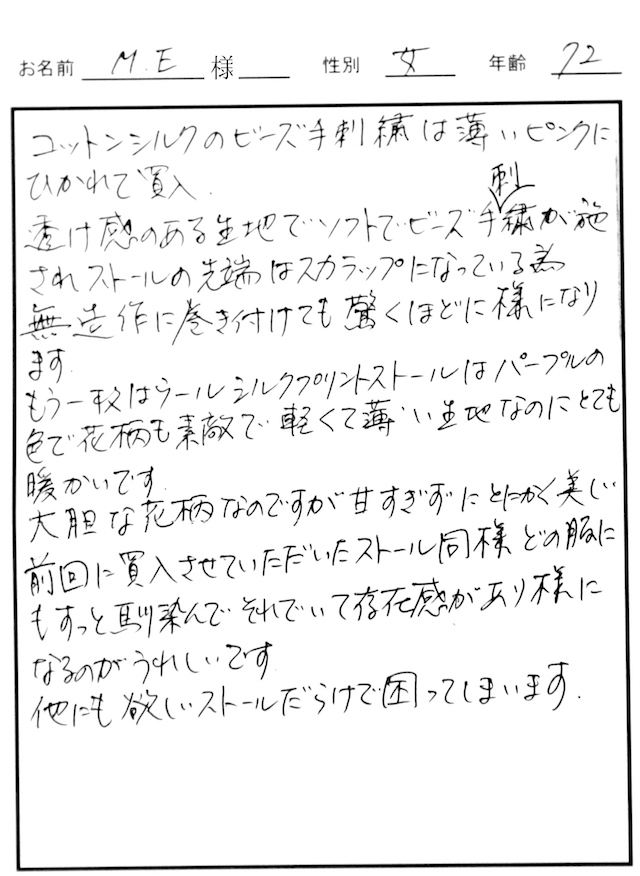 お名前 M.E 様 性別 女 年齢 72
コットンシルクのビーズ手刺繍は薄いピンクに
ひかれて買入.
透け感のある生地でソフトでビーズ手刺繍が施
されストールの先端はスカラップになっている為
無造作に巻き付けても驚くほどに様になり
ます.
もう一枚はウールシルクプリントストールはパープルの
色で花柄も素敵で軽くて薄い生地なのにとても
暖かいです.
大胆な花柄なのですが甘すぎずにとにかく美しい
前回に買入させていただいたストール同様どの服に
もすっと馴染んでそれでいて存在感があり様に
なるのがうれしいです.
他にも欲しいストールだらけで困ってしまいます.